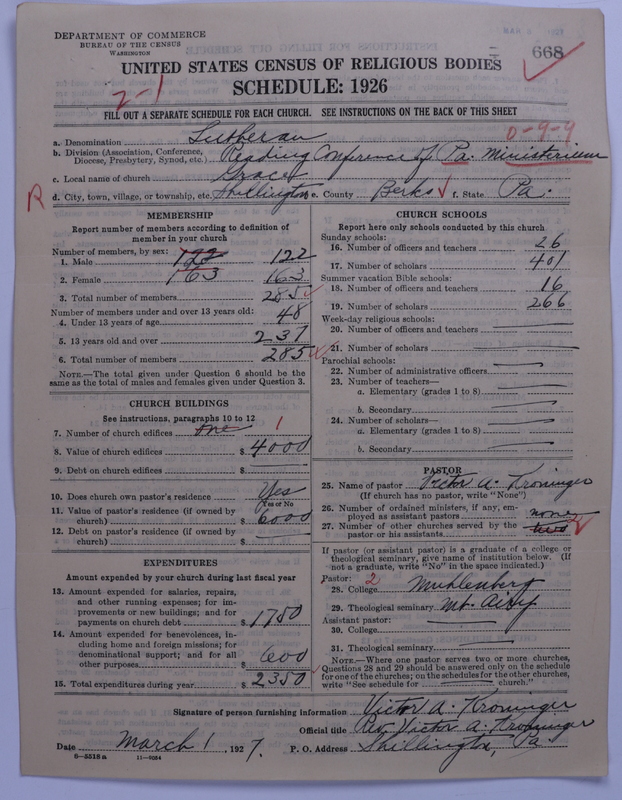 DEPARTMENT OF COMMERCE
BUREAU OF THE CENSUS
WASHINGTON
668
UNITED STATES CENSUS OF RELIGIOUS BODIES
SCHEDULE: 1926
2-1
FILL OUT A SEPARATE SCHEDULE FOR EACH CHURCH. SEE INSTRUCTIONS ON THE BACK OF THIS SHEET
0-9-9
a. Denomination Lutheran
b. Division (Association, Conference, Diocese, Presbytery, Synod, etc.) Reading Conference of Pa. Ministerium
c. Local name of church Grace
R
d. City, town, village, or township, etc. Shillington e. County Berks f. State Pa.
MEMBERSHIP
Report number of members according to definition of
member in your church
Number of members, by sex:
1. Male 122 122
2. Female 163 163
3. Total number of members 285
Number of members under and over 13 years old:
4. Under 13 years of age 48
5. 13 years old and over 237
6. Total number of members 285
NOTE.—The total given under Question 6 should be
same as the total of males and females given under Question 3.
CHURCH BUILDINGS
See instructions, paragraphs 10 to 12
7. Number of church edifices One 1
8. Value of church edifices $ 4000
9. Debt on church edifices $
10. Does church own pastor's residence Yes
Yes or No
11. Value of pastor's residence (if owned by
church) $ 6000
12. Debt on pastor's residence (if owned by
church) $
EXPENDITURES
Amount expended by your church during last fiscal year
13. Amount expended for salaries, repairs,
and other running expenses; for im-
provements or new buildings; and for
payments on church debt $ 1750
14. Amount expended for benevolences, in-
cluding home and foreign missions; for
denominational support; and for all
other purposes $ 600
15. Total expenditures during year $ 2350
CHURCH SCHOOLS
Report here only schools conducted by this church
Sunday schools:
16. Number of officers and teachers 26
17. Number of scholars 401
Summer vacation Bible schools:
18. Number of officers and teachers 16
19. Number of scholars 266
Week-day religious schools:
20. Number of officers and teachers
21. Number of scholars
Parochial schools:
22. Number of administrative officers
23. Number of teachers—
a. Elementary (grades 1 to 8)
b. Secondary
24. Number of scholars—
a. Elementary (grades 1 to 8)
b. Secondary
PASTOR
25. Name of pastor Victor A. Kroninger
(If church has no pastor, write "None")
26. Number of ordained ministers, if any, em-
ployed as assistant pastors none
27. Number of other churches served by the
pastor or his assistants two
If pastor (or assistant pastor) is a graduate of a college or
theological seminary, give name of institution below. (If
not a graduate, write "No" in the space indicated.)
Pastor: 2
28. College Muhlenberg
29. Theological seminary Mt. Airy
Assistant pastor:
30. College
31. Theological seminary
NOTE.—Where one pastor serves two or more churches,
Questions 28 and 29 should be answered only on the schedule
for one of the churches; on the schedules for the other churches,
write "See schedule for church."
Signature of person furnishing information Victor A. Kroninger
Official title Rev. Victor A. Kroninger
Date March 1, 1927. P. O. Address Shillington, Pa.
6-5518a 11-9054